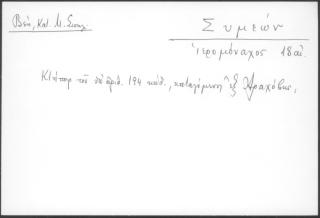 Βέη, Κατ. Μ. Σιναϊ.
Συμεών
ἱερομόναχος 18 αἰ.
Κτήτωρ τοῦ ὑπ' ἀριθ. 194 κώδ., καταγόμενος ἐξ Ἀραχόβης.